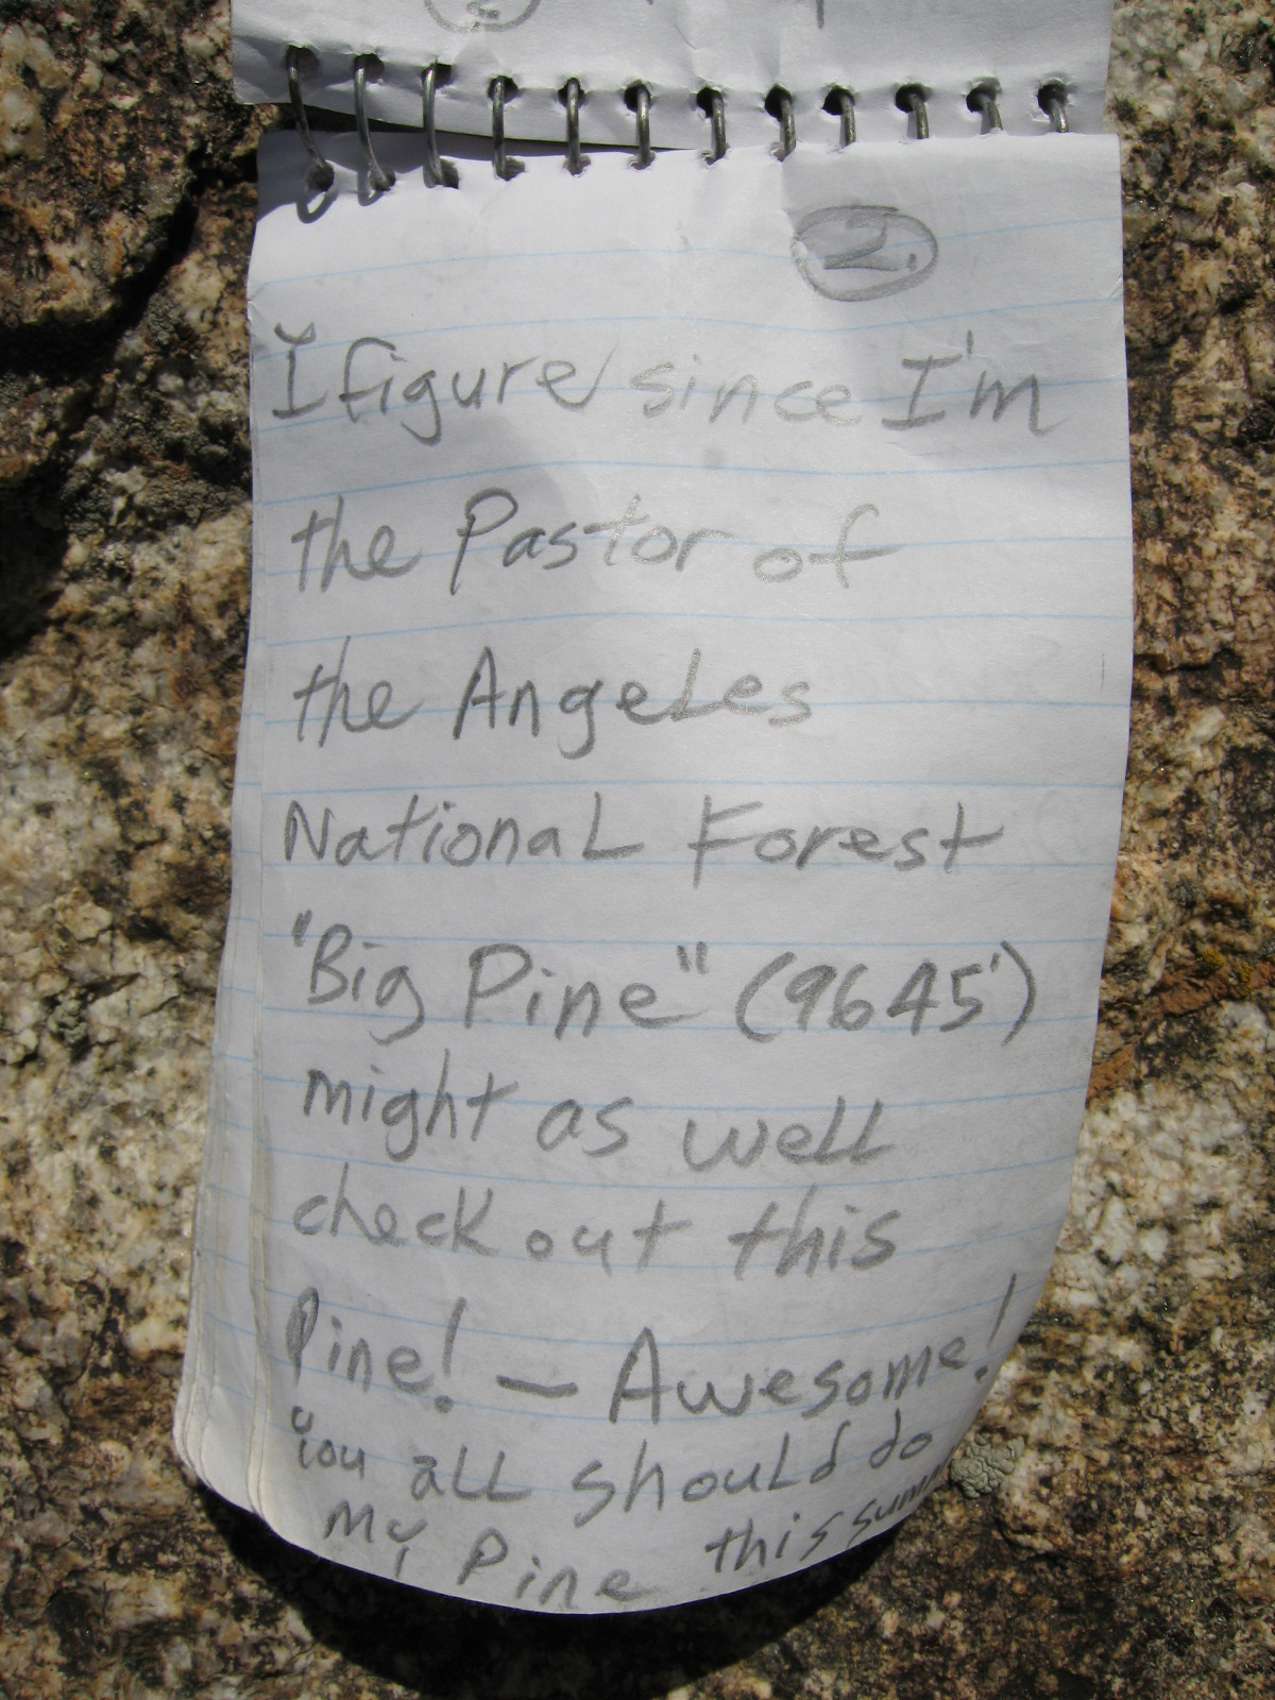 2.
I figure since I'm
the Pastor of
the Angeles
National Forest
"Big Pine" (9645')
might as well
check out this
Pine! — Awesome!
You all should do
My Pine this